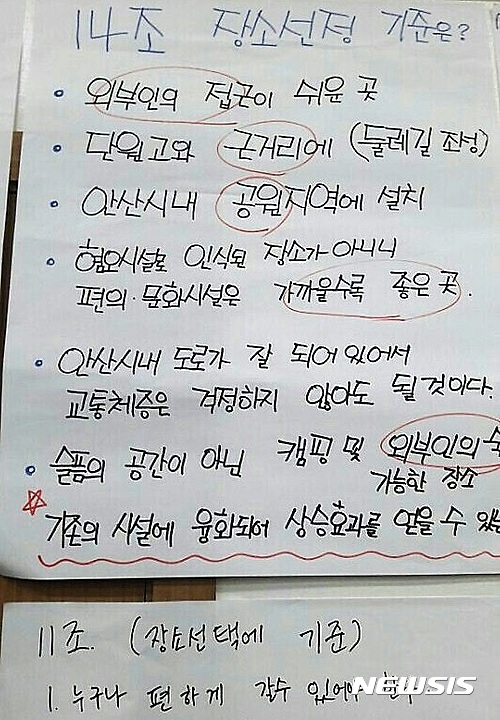 14조 장소선정 기준은?
• 외부인의 접근이 쉬운 곳
• 단원고와 근거리에 (둘레길 조성)
• 안산시내 공원지역에 설치
• 혐오시설로 인식된 장소가 아니니
편의·문화시설은 가까울수록 좋은 곳.
• 안산시내 도로가 잘 되어 있어서
교통체증은 걱정하지 않아도 될 것이다.
• 슬픔의 공간이 아닌 캠핑 및 외부인의
가능한 장소
☆ 기존의 시설에 융화되어 상승효과를 얻을 수 있는
11조. (장소선택에 기준)
1. 누구나 편하게 갈수 있어야
NEWSIS